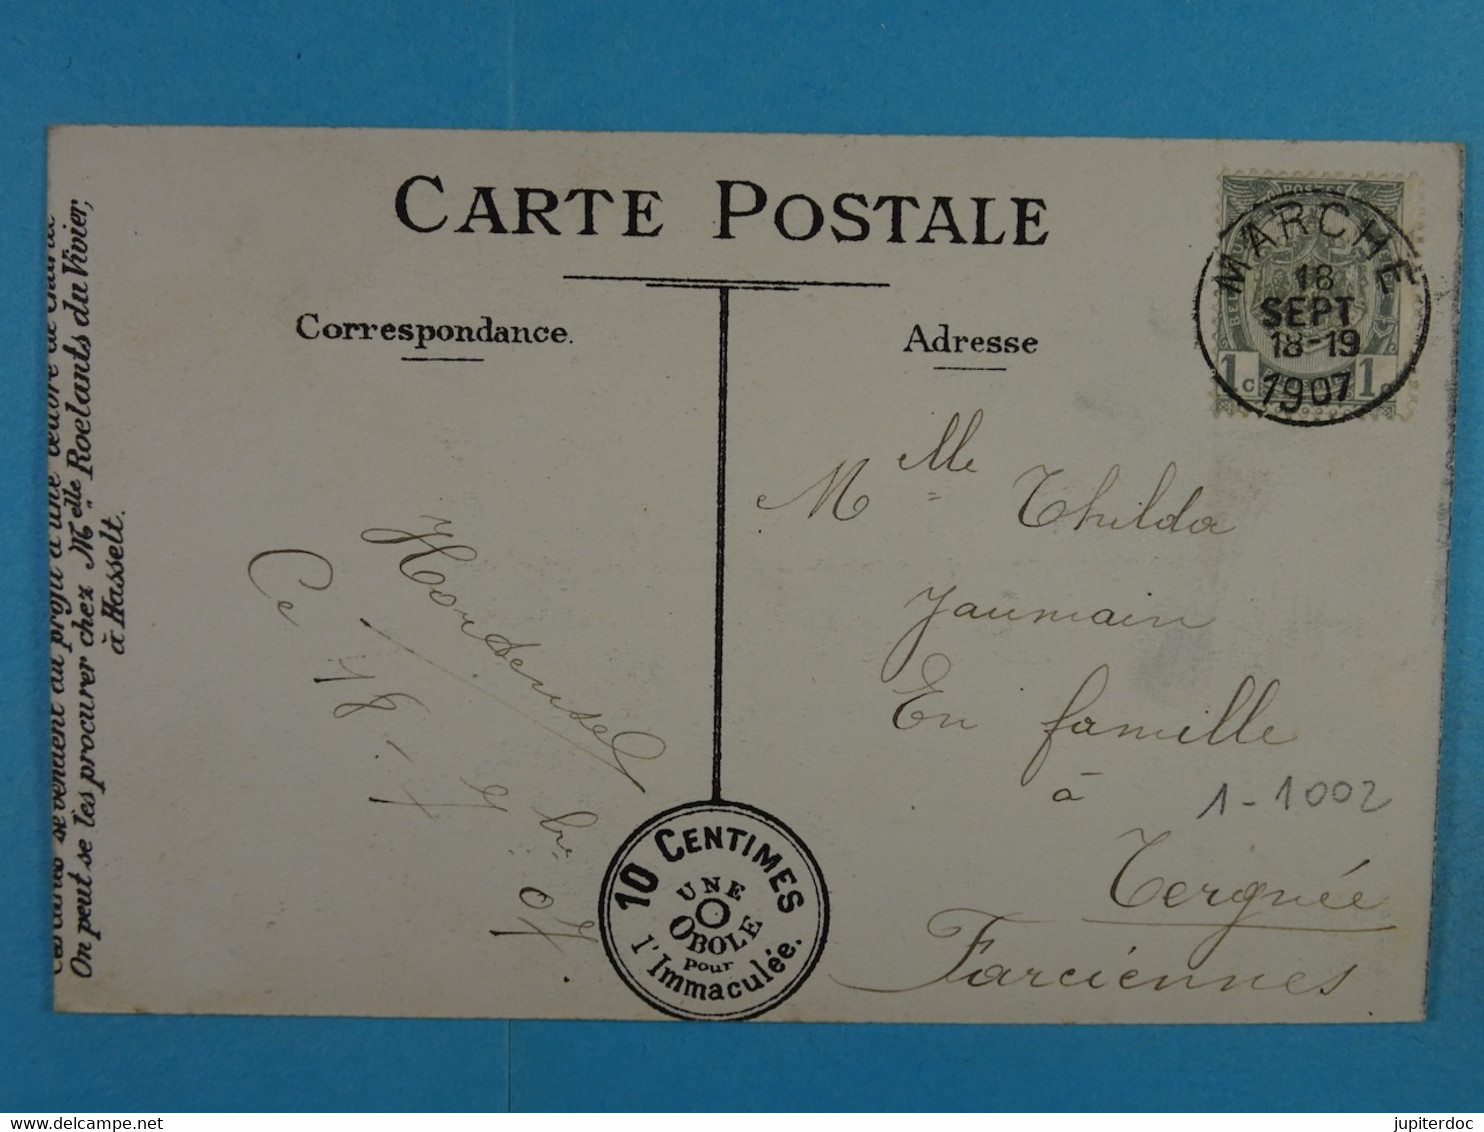 CARTE POSTALE
Correspondance.
Adresse
MARCHE
18
SEPT
18-19
1907
1c 1c
Mlle Thilda
Jaumain
En famille
à
1-1002
Tergnée
Farciennes
Ce 18 - 7bre 07.
10 CENTIMES
UNE
OBOLE
pour
l'Immaculée.
se vendent au profit d'une œuvre de
On peut se les procurer chez Mdlle Roelants du Vivier,
à Hasselt.
jupiterdoc